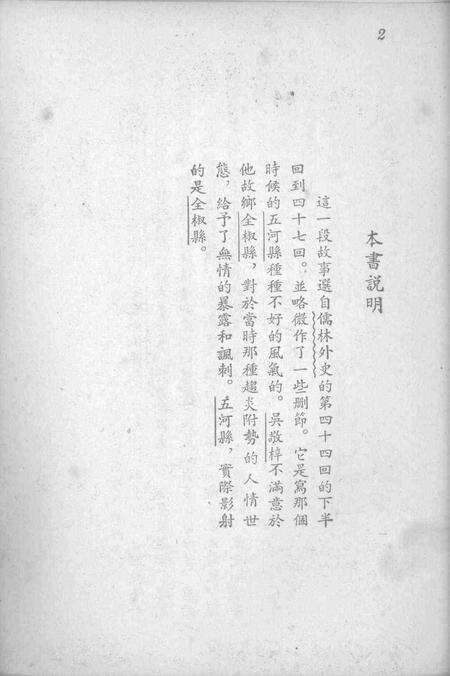 2
本書説明
這一段故事選自儒林外史的第四十四回的下半
回到四十七回。並略微作了一些刪節。它是寫那個
時候的五河縣種種不好的風氣的。吳敬梓不滿意於
他故鄉全椒縣，對於當時那種趨炎附勢的人情世
態，給予了無情的暴露和諷刺。五河縣，實際影射
的是全椒縣。